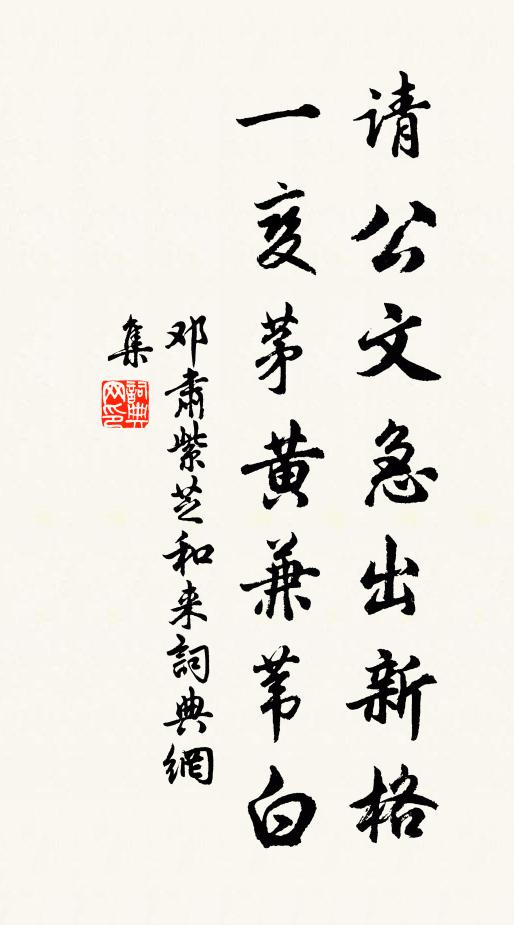 请公文急出新格
一变茅黄兼苇白
邓肃紫芝和来詞典網
集
詞典网印